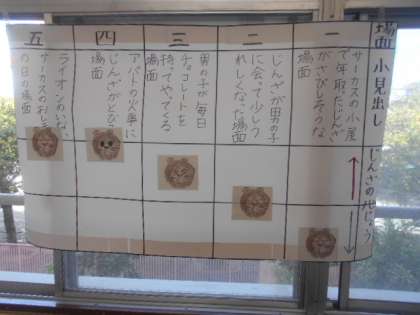 場面
小見出し
じんざの
一
サーカスの小屋
で年取ったじんざ
がさびしそうな
場面
二
じんざが男の子
に会って少しう
れしくなった場面
三
男の子が毎日
チョコレートを
持ってやってくる
場面
四
アパートの火事に
じんざがとびこむ
場面
五
ライオンのいない
サーカスのおしまい
の日の場面